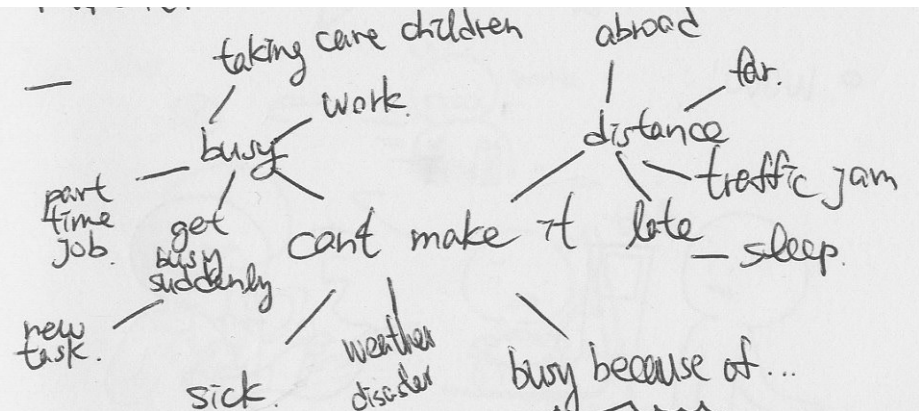 taking care children
abroad
far.
work.
busy
distance
traffic jam
part
time
job.
get
busy
suddenly
cant make it
late
sleep.
new
task.
weather
disaster
sick.
busy because of...